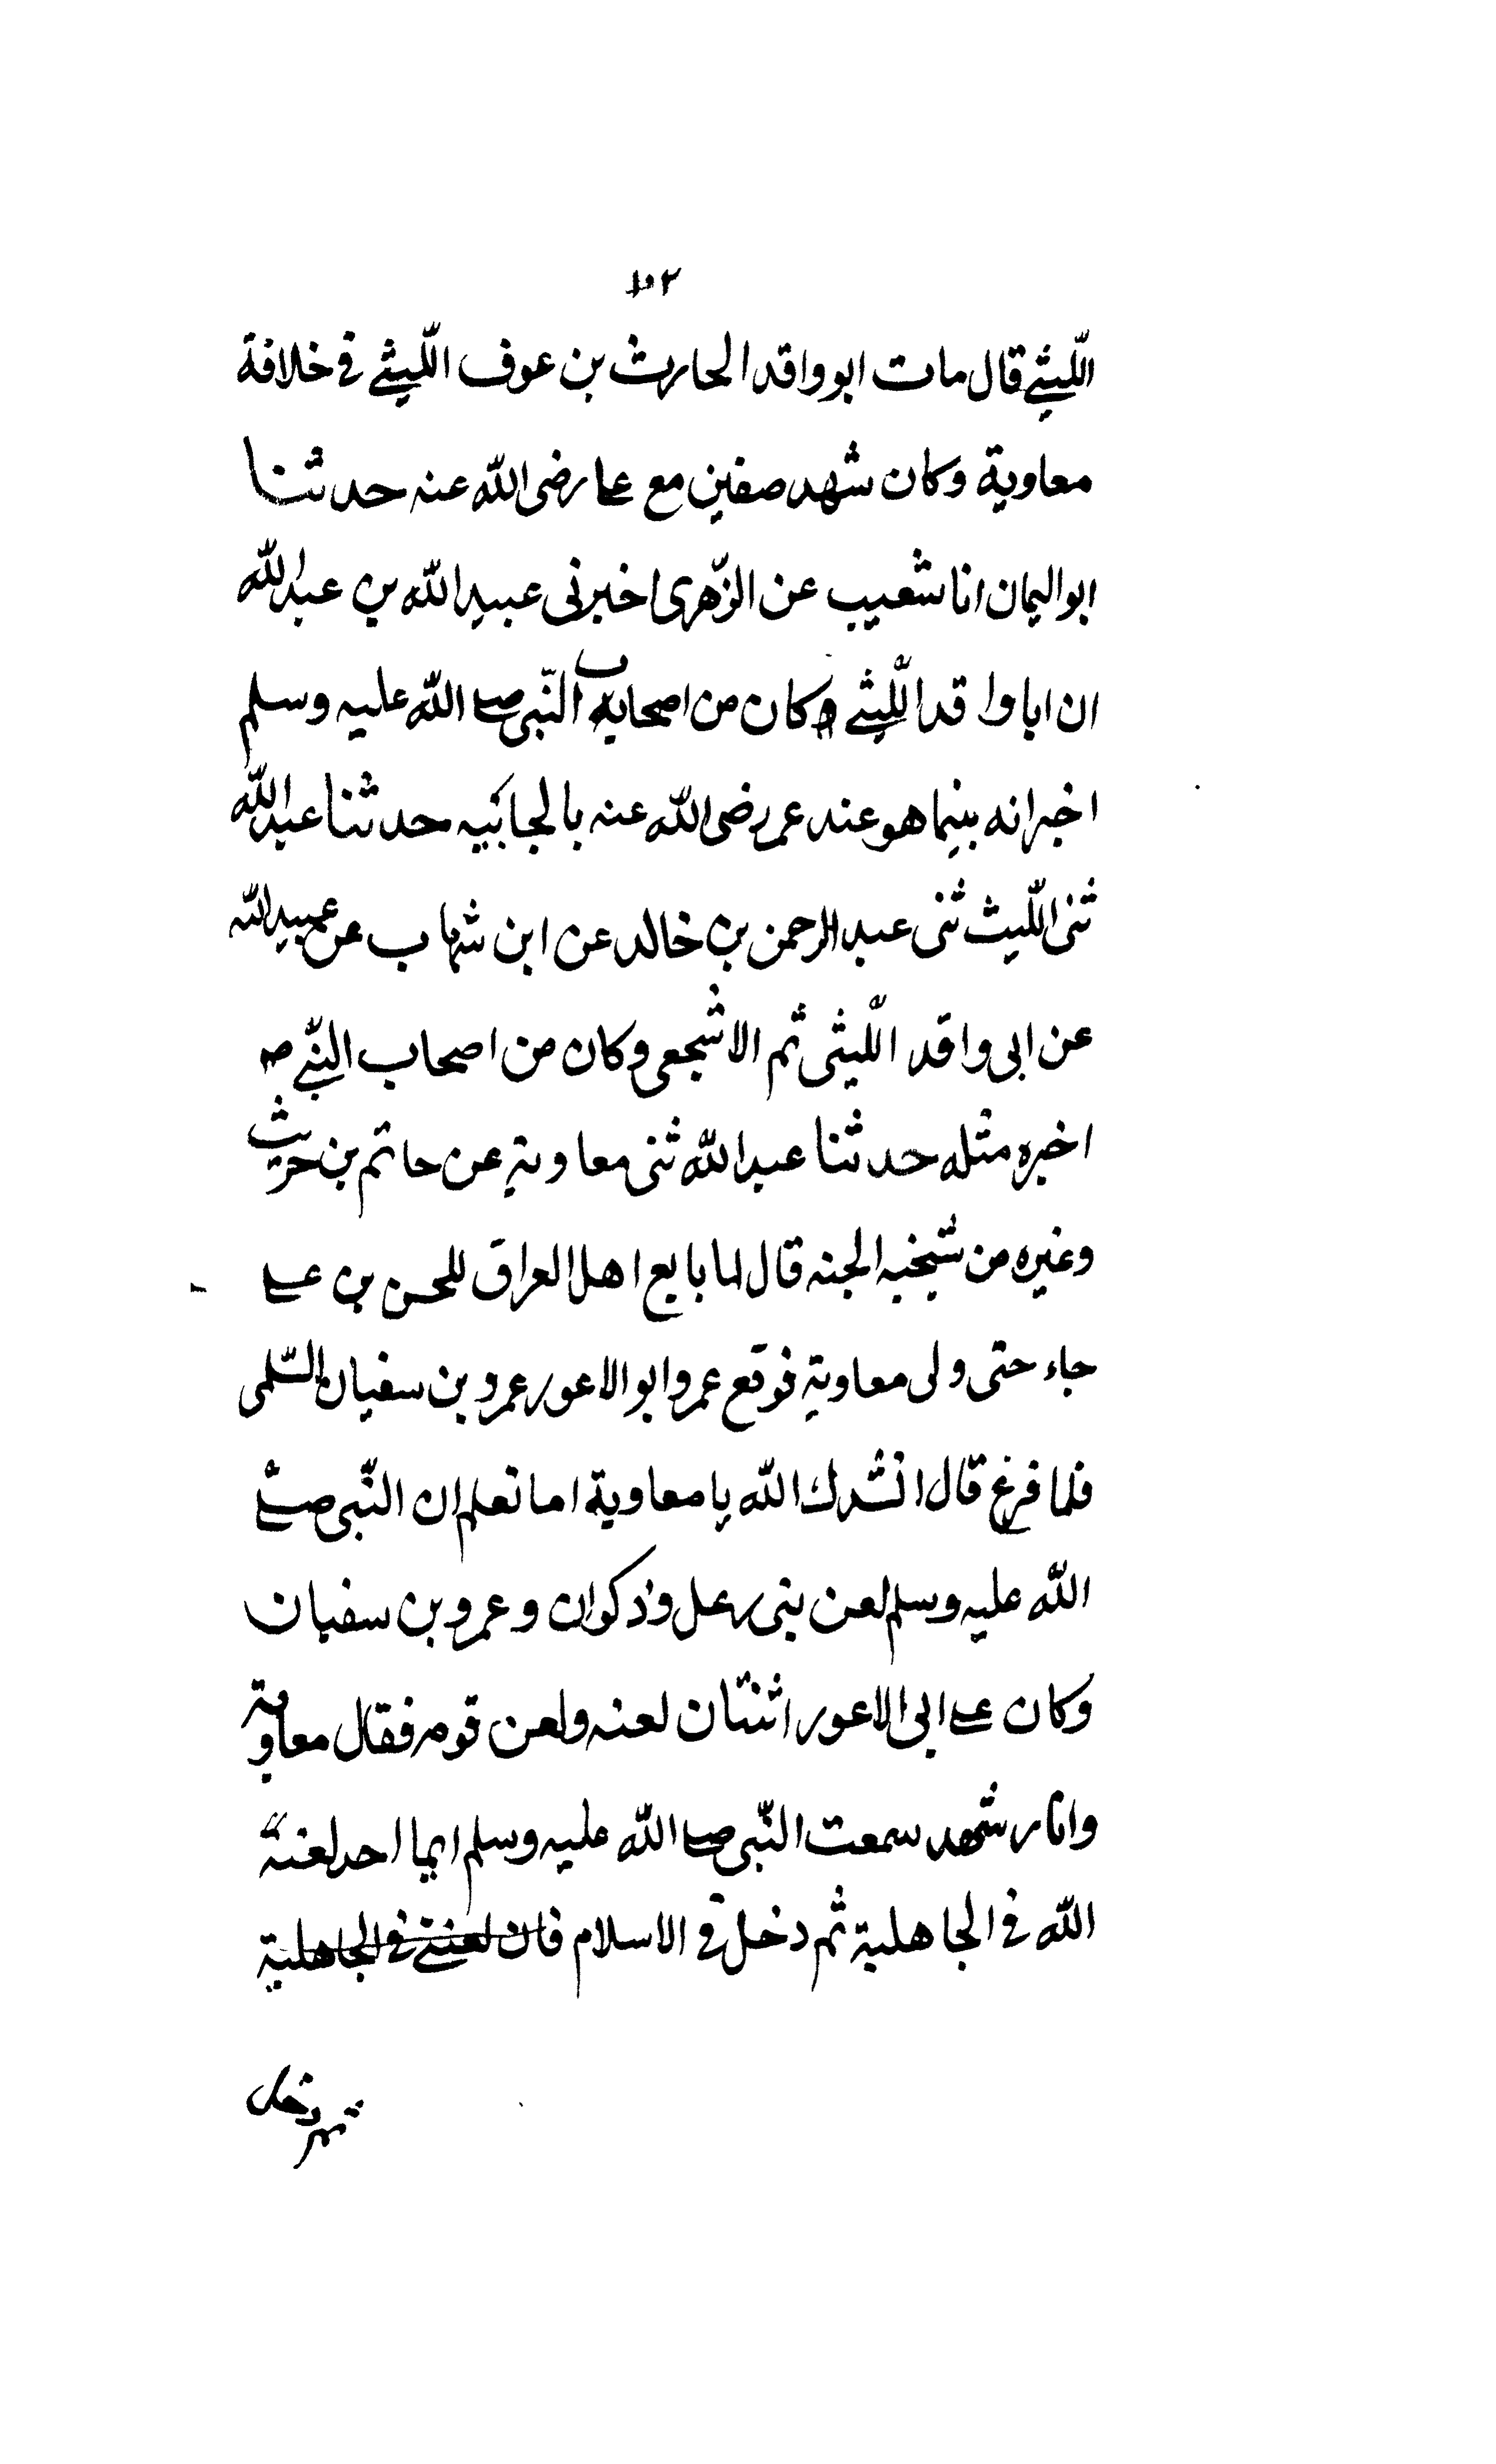 الليثي قال مات ابو واقد الحارث بن عوف الليثي في خلافة
معاوية وكان شهد صفين مع علي رضى الله عنه حدثنا
ابو اليمان انا شعيب عن الزهرى اخبرنى عبيد الله بن عبد الله
ان ابا واقد الليثي وكان من اصحاب النبي صلى الله عليه وسلم
اخبر انه بينما هو عند عمر رضى الله عنه بالجابيه حدثنا عبد الله
ثنى الليث ثنى عبد الرحمن بن خالد عن ابن شهاب عن عبيد الله
عن ابى واقد الليثى ثم الاشجعى وكان من اصحاب النبي ص
اخبره مثله حدثنا عبد الله ثنى معاوية عن حاتم بن حريث
وغيره من شيخيه الجنه قال لما بايع اهل العراق للحسن بن علي
جاء حتى ولى معاوية فوقع عمرو ابو الاعور عمرو بن سفيان السلمى
فلما فرغ قال انشدك الله يا معاوية اما تعلم ان النبى صلى
الله عليه وسلم لعن بنى رعل وذكوان وعمرو بن سفيان
وكان على ابى الاعور اثنتان لعنه ولعن قومه فقال معاوية
وانا شهد سمعت النبى صلى الله عليه وسلم ايما احد لعنه
الله في الجاهلية ثم دخل في الاسلام فان لعنتي في الجاهلية
ثم دخل